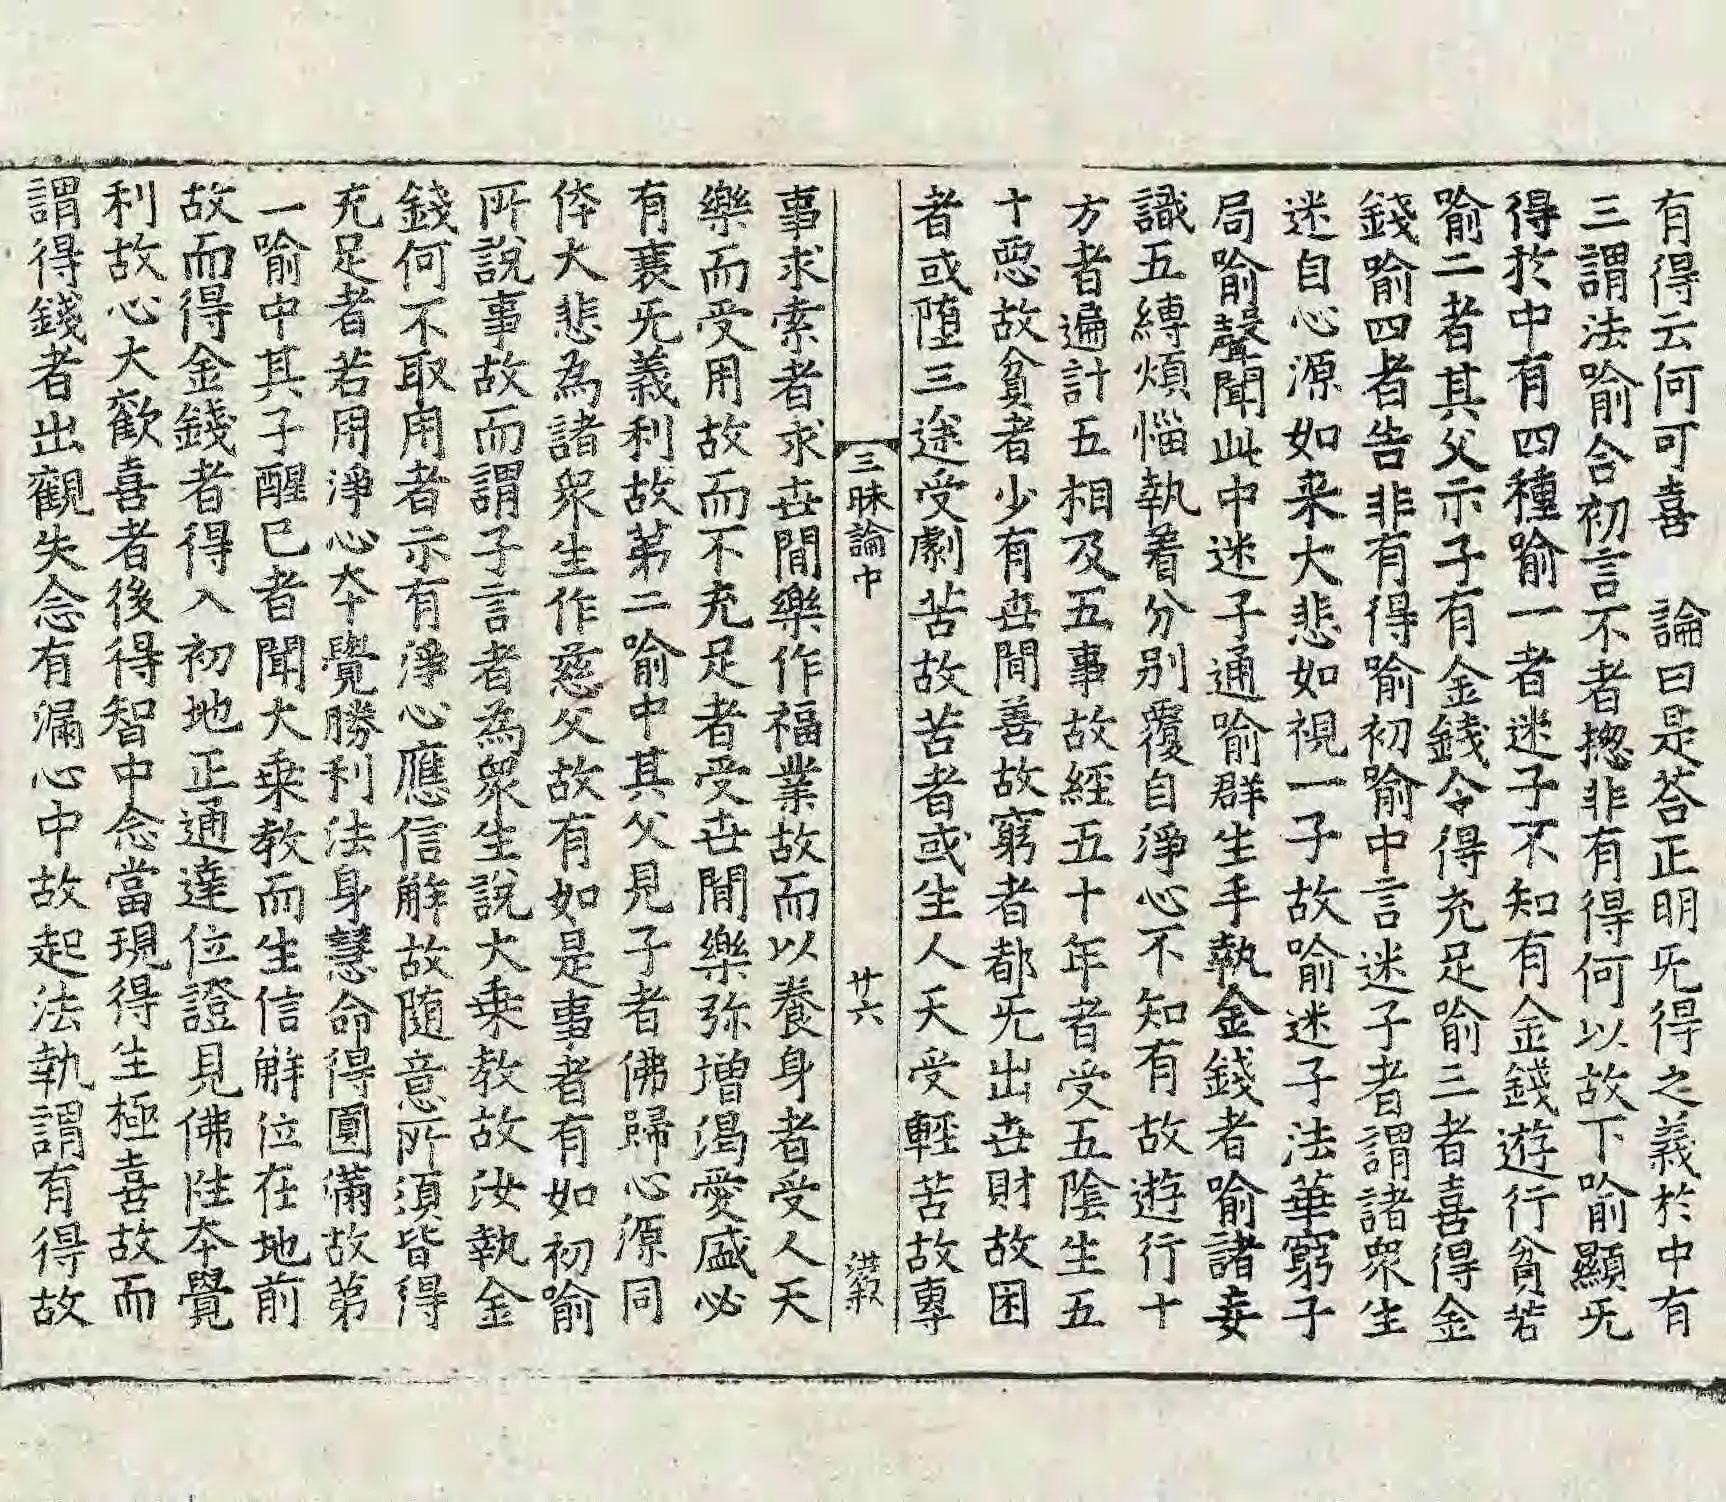 有得云何可喜　論曰是荅正明旡得之義於中有
三謂法喻合初言不者揔非有得何以故下喻顯旡
得於中有四種喻一者迷子不知有金錢遊行貧若
喻二者其父示子有金錢令得充足喻三者喜得金
錢喻四者告非有得喻初喻中言迷子者謂諸衆生
迷自心源如来大悲如視一子故喻迷子法華窮子
局喻聲聞此中迷子通喻群生手執金錢者喻諸妄
識五縛煩惱執着分别覆自淨心不知有故遊行十
方者遍計五相及五事故經五十年者受五隂生五
十惡故貧者少有世間善故窮者都旡出世財故困
者或墮三途受劇苦故苦者或生人天受輕苦故專
三昧論中
廿六
洪叙
事求索者求世間樂作福業故而以養身者受人天
樂而受用故而不充足者受世間樂弥增渴愛盛必
有衰旡義利故第二喻中其父見子者佛歸心源同
体大悲為諸衆生作慈父故有如是事者有如初喻
所說事故而謂子言者為衆生說大乗教故汝執金
錢何不取用者示有淨心應信解故随意所須皆得
充足者若用淨心夲覺勝利法身慧命得圓滿故第
一喻中其子醒已者聞大乗教而生信解位在地前
故而得金錢者得入初地正通達位證見佛性夲覺
利故心大歡喜者後得智中念當現得生極喜故而
謂得錢者出觀失念有漏心中故起法執謂有得故